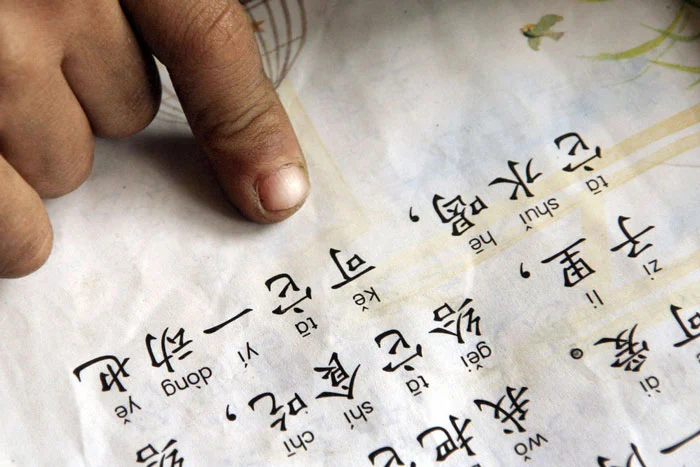 ài wǒ
可爱。我把它
zi li gěi tā shí chī
子里，给它食吃，给
tā shuǐ hē kě tā yí dòng yě
它水喝，可它一动也